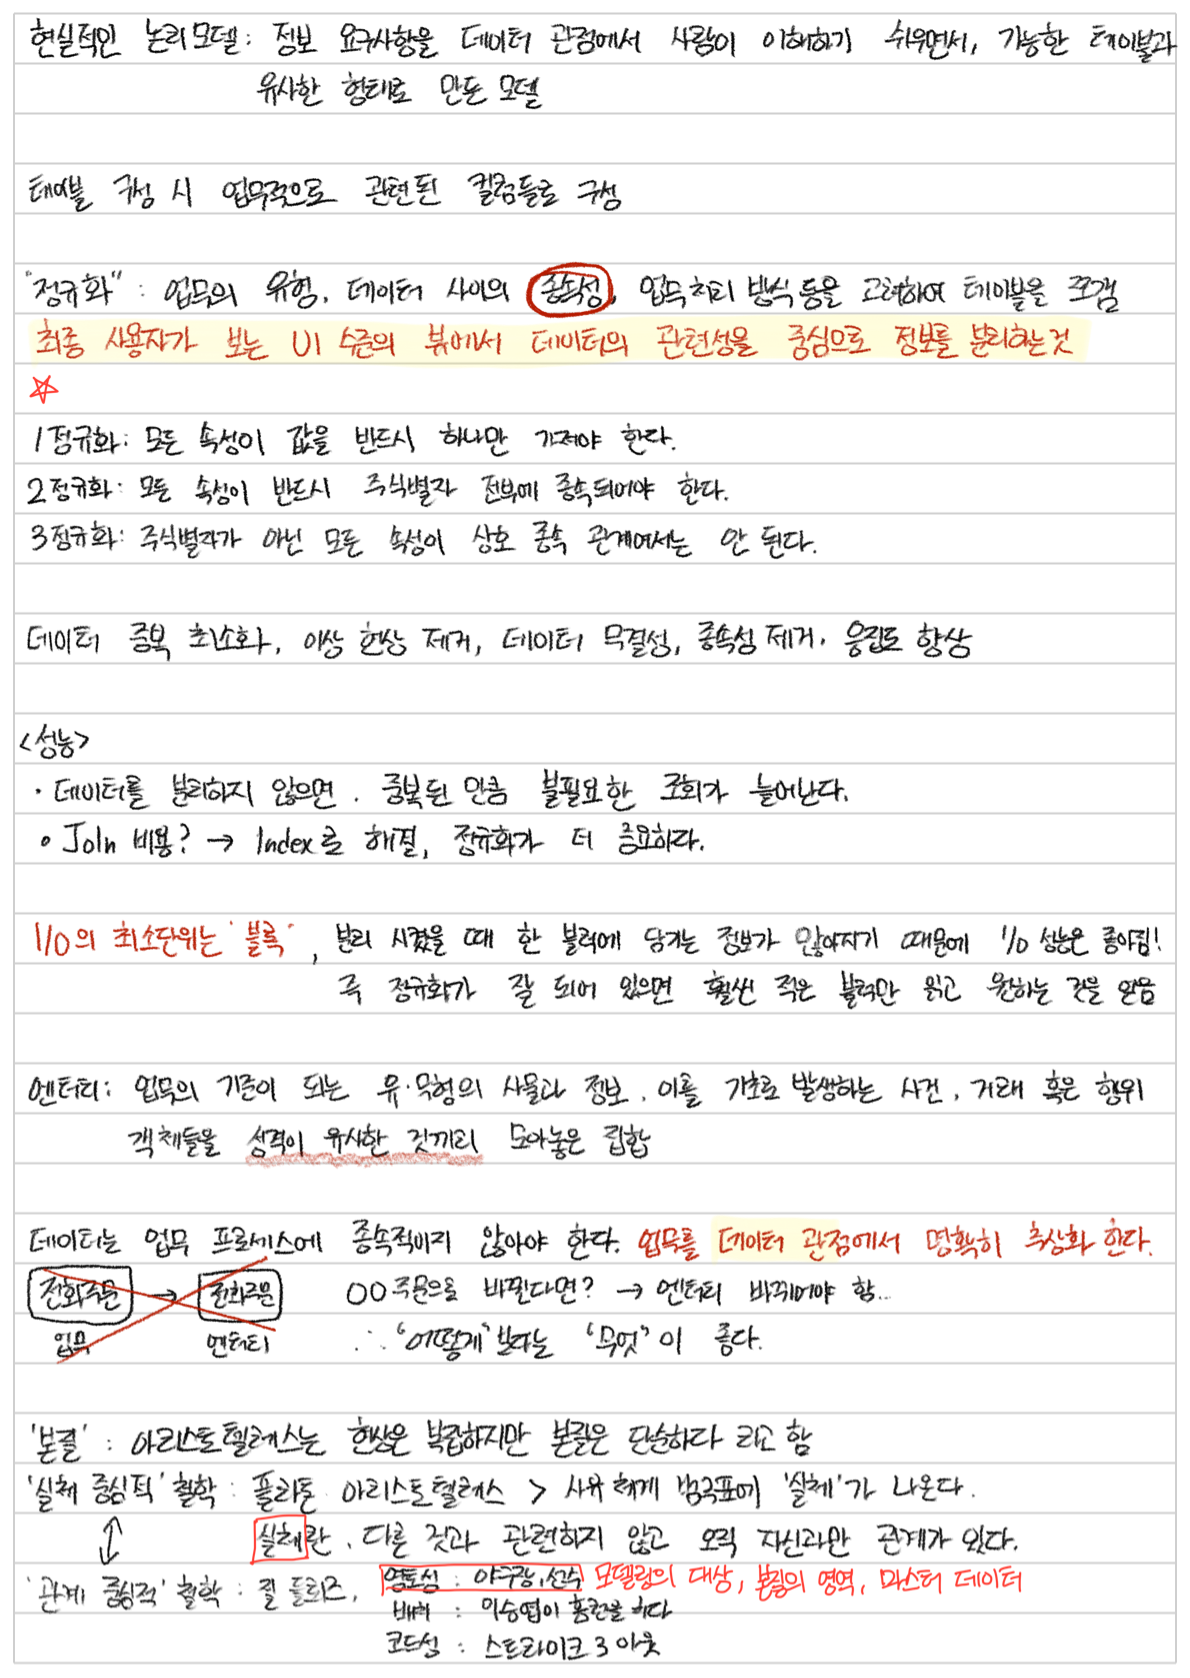 현실적인 논리모델: 정보 요구사항을 데이터 관점에서 사람이 이해하기 쉬우면서, 가능한 테이블과
유사한 형태로 만든 모델
테이블 구성 시 업무적으로 관련된 컬럼들로 구성
"정규화" : 업무의 유형, 데이터 사이의 종속성, 업무처리 방식 등을 고려하여 테이블을 쪼갬
최종 사용자가 보는 UI 수준의 뷰에서 데이터의 관련성을 중심으로 정보를 분리하는것
1정규화: 모든 속성이 값을 반드시 하나만 가져야 한다.
2정규화: 모든 속성이 반드시 주식별자 전부에 종속되어야 한다.
3정규화: 주식별자가 아닌 모든 속성이 상호 종속 관계여서는 안 된다.
데이터 중복 최소화, 이상 현상 제거, 데이터 무결성, 종속성 제거. 응집도 향상
<성능>
· 데이터를 분리하지 않으면. 중복된 만큼 불필요한 조회가 늘어난다.
• Join 비용? → Index로 해결, 정규화가 더 중요하다.
I/O의 최소단위는 '블록', 분리 시켰을 때 한 블럭에 담기는 정보가 많아지기 때문에 I/O 성능은 좋아짐!
즉 정규화가 잘 되어 있으면 훨씬 적은 블럭만 읽고 원하는 것을 얻음
엔터티: 업무의 기준이 되는 유·무형의 사물과 정보. 이를 기초로 발생하는 사건, 거래 혹은 행위
객체들을 성격이 유사한 것끼리 모아놓은 집합
데이터는 업무 프로세스에 종속적이지 않아야 한다. 업무를 데이터 관점에서 명확히 추상화 한다.
전화주문 → 전화주문 OO주문으로 바뀐다면? → 엔터티 바뀌어야 함...
업무 엔터티 ∴ "어떻게"보다는 "무엇"이 좋다.
'본질' : 아리스토텔레스는 현상은 복잡하지만 본질은 단순하다 라고 함
'실체 중심적' 철학 : 플라톤 아리스토텔레스 > 사유 체계 범주표에 '실체'가 나온다.
↕ 실체란, 다른 것과 관련하지 않고 오직 자신과만 관계가 있다.
'관계 중심적' 철학 : 질 들뢰즈, 영토성 : 야구장, 선수 모델링의 대상, 본질의 영역, 마스터 데이터
배치 : 이승엽이 홈런을 하다
코드성 : 스트라이크 3 아웃